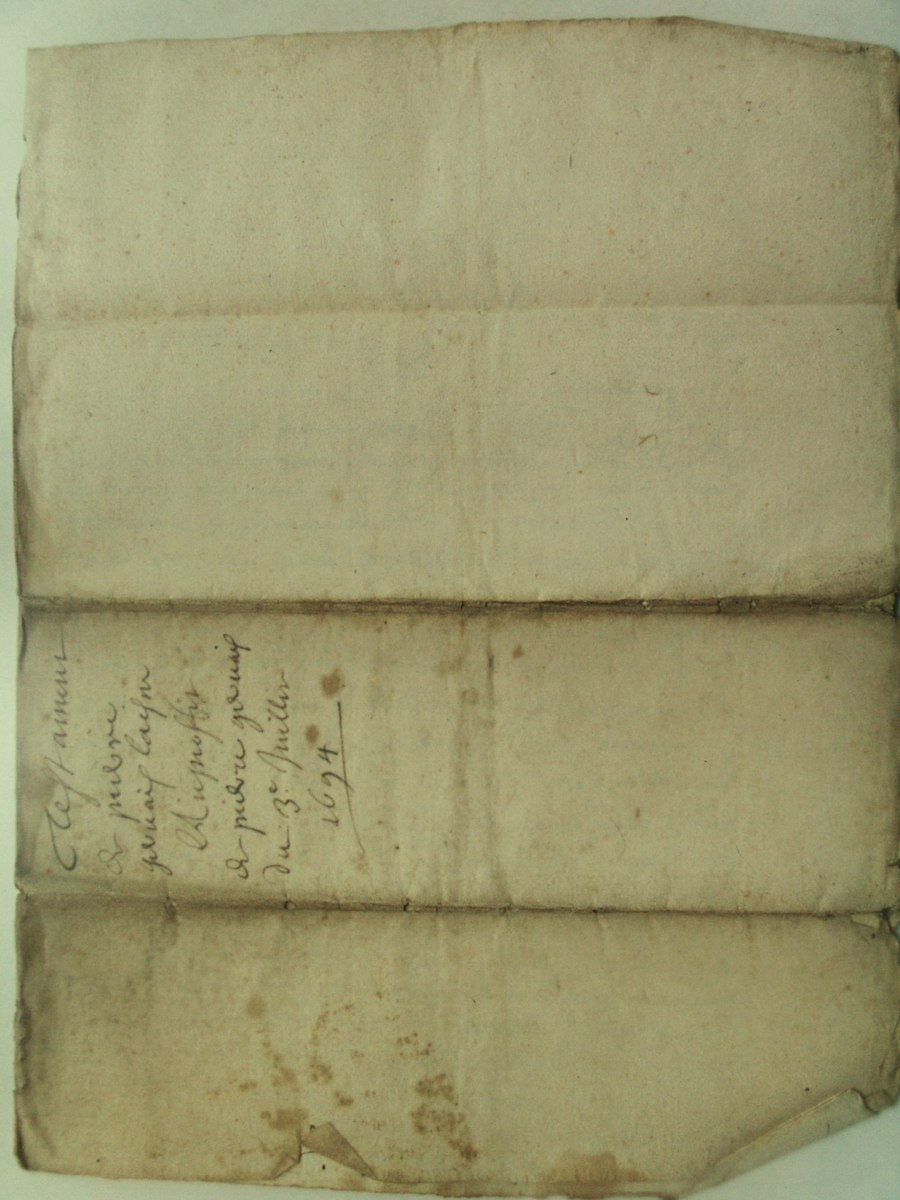 Testament
de pierre
gervais laisne
de pierre gervais
du 3e Juillet
1694